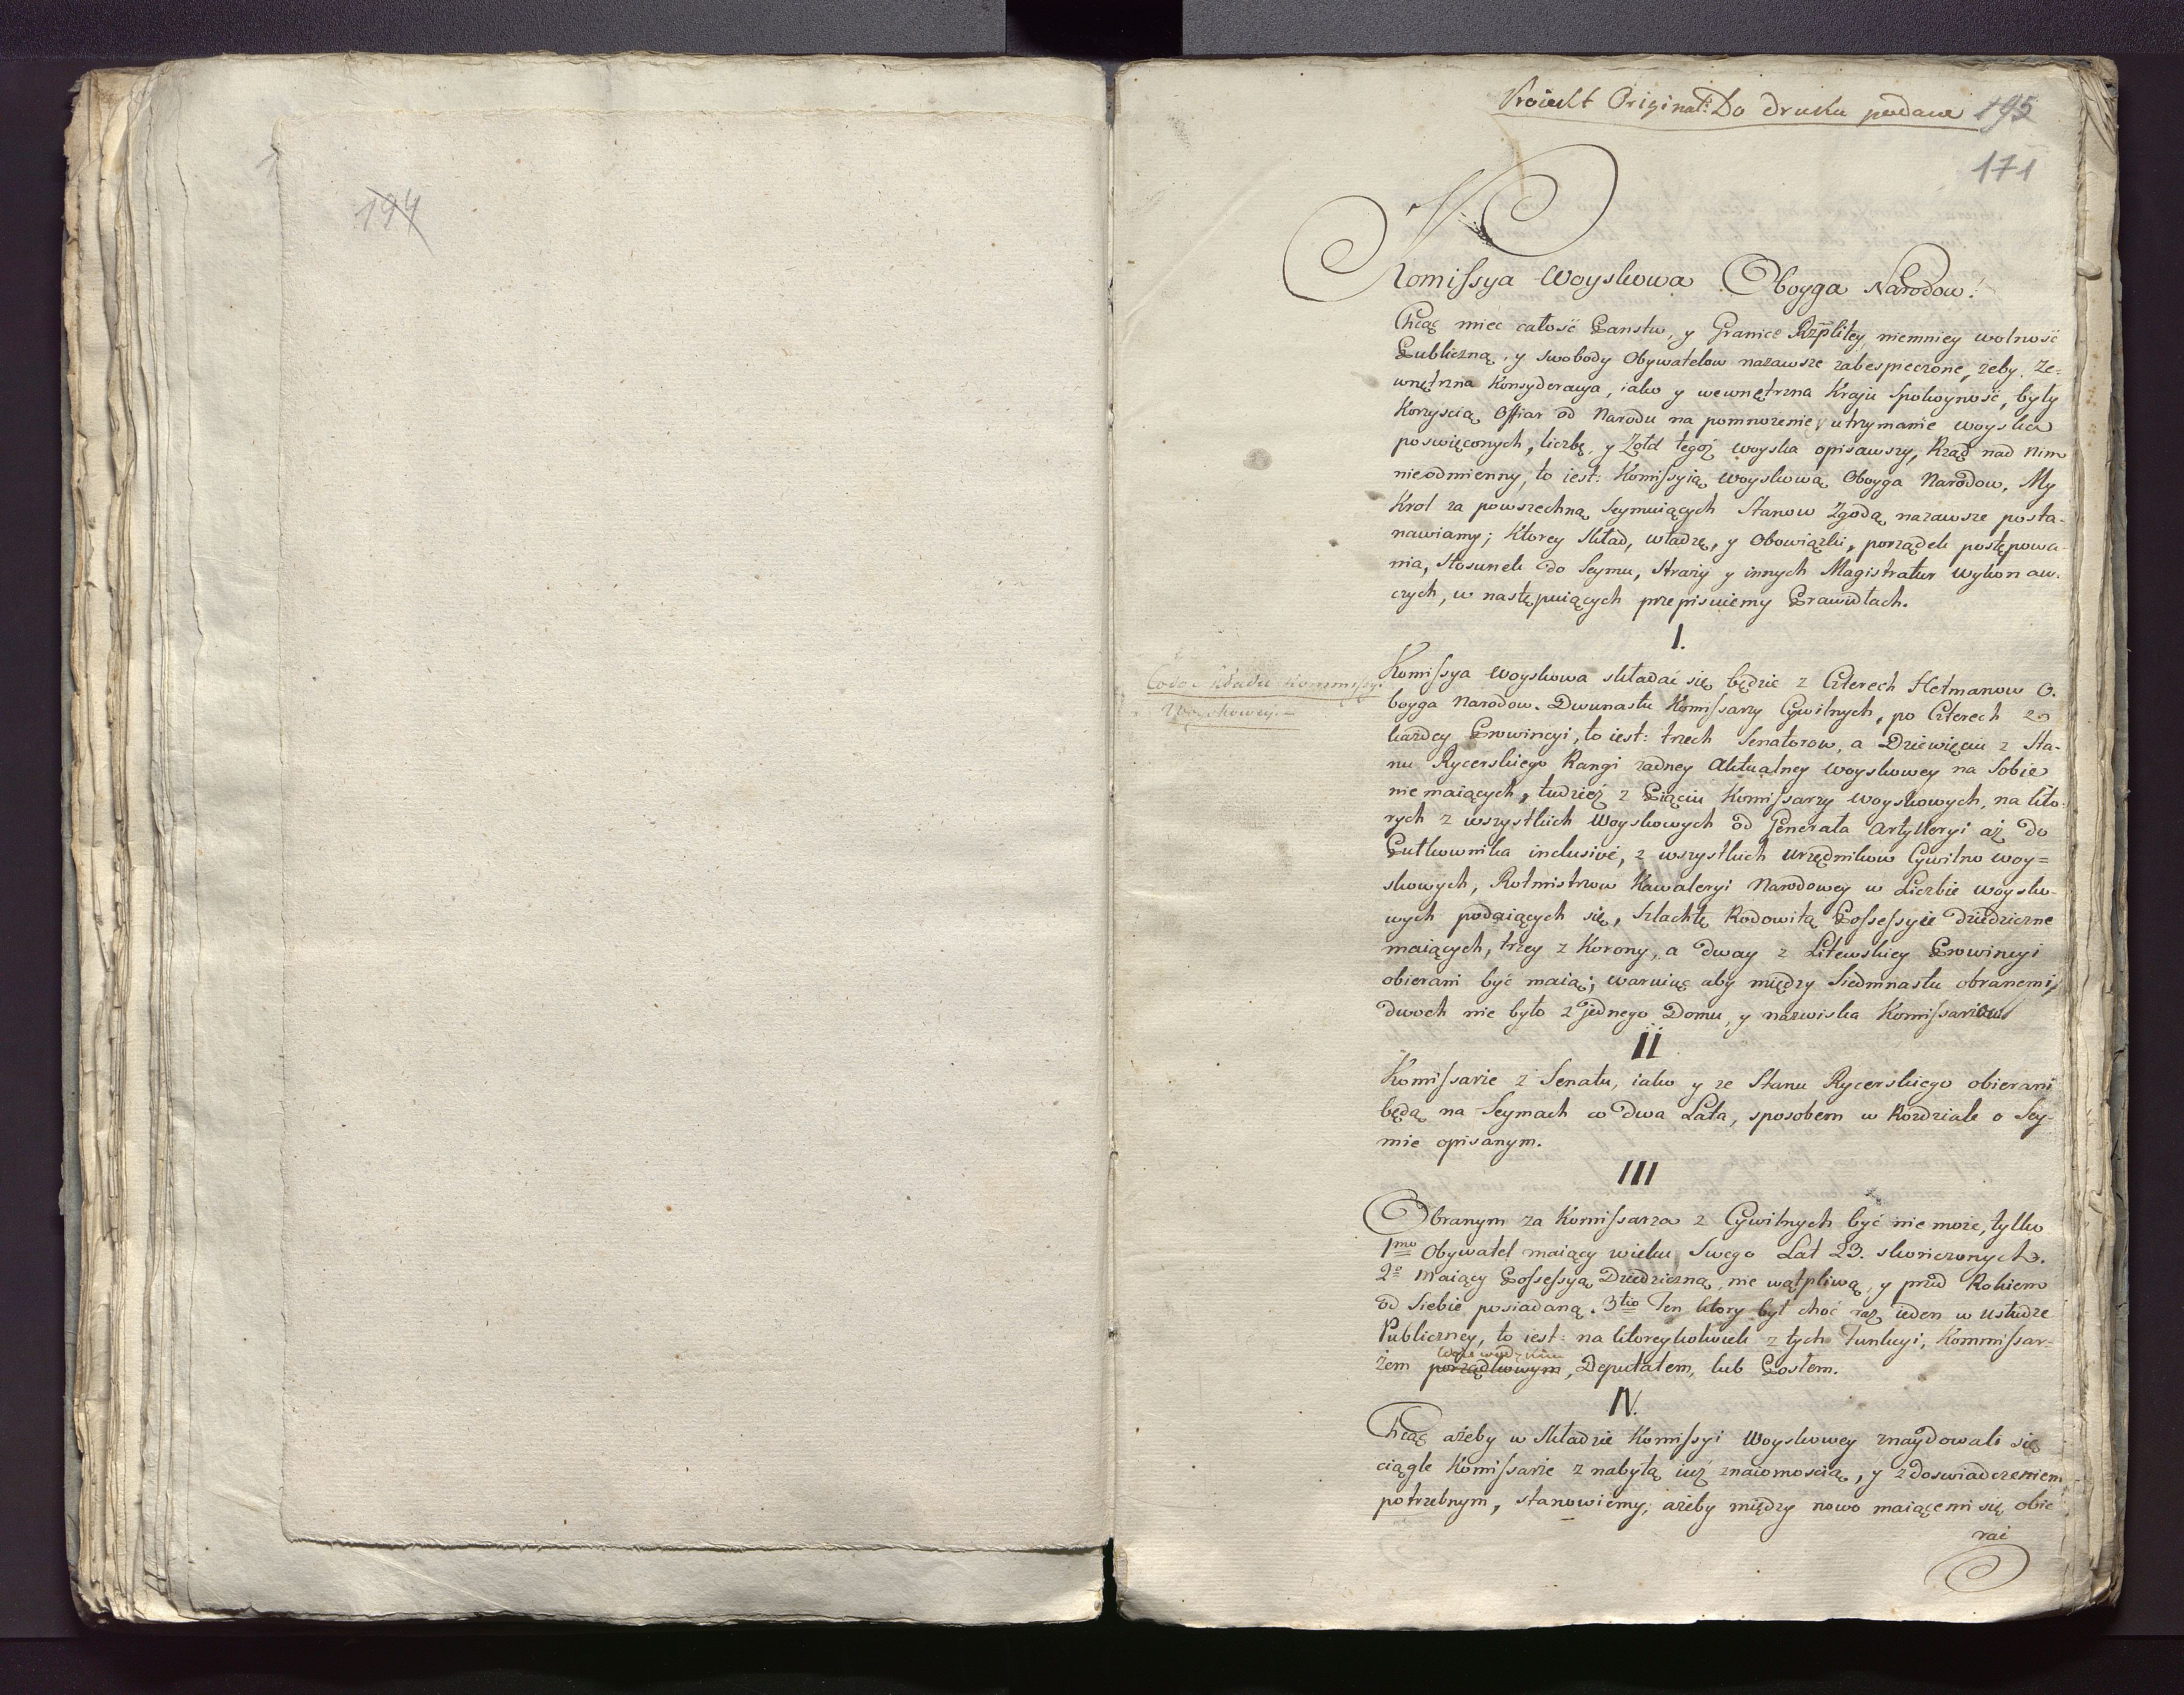 194
Proiekt Original: Do druku podane 195
171
Komissya Woyskowa Oboyga Narodow!
Chcąc miec całość Panstw, y Granice Rzplitey, niemniey wolność
Publiczną, y swobody Obywatelow nazawsze zabespieczone, żeby Ze=
wnętrzna Konsyderacya, iako y wewnętrzna Kraju Spokoyność, były
Korzyscią Offiar od Narodu na pomnożenie y utrzymanie woyska
poswięconych, liczbę, y Żołd tegoż woyska opisawszy, Rząd nad nim
nieodmienny, to iest: Komissyią Woyskową Oboyga Narodow, My
Krol za powszechną Seymuiących Stanow Zgodą nazawsze posta-
nawiamy; Ktorey Skład, władzę, y Obowiązki, porządek postępowa-
nia, Stosunek do Seymu, Straży y innych Magistratur wykonaw-
czych, w następuiących przepisuiemy Prawidłach.
I.
Co do Składu Kommissyi
Woyskowey.
Komissya Woyskowa składać się będzie z Czterech Hetmanow O-
boyga Narodow. Dwunastu Komissarzy Cywilnych, po Czterech z
każdey Prowincyi, to iest: trzech Senatorow, a Dziewięciu z Sta-
nu Rycerskiego Rangi żadney Aktualney woyskowey na Sobie
nie maiących, tudzież z Pięciu Komissarzy woyskowych, na kto-
rych z wszystkich Woyskowych od Generała Artylleryi aż do
Pułkownika inclusivé, z wszystkich urzędnikow Cywilno woy=
skowych, Rotmistrzow Kawaleryi Narodowey w Liczbie woysko-
wych podaiących się, Szlachtę Rodowitą Possessyie dziedziczne
maiących, trzey z Korony, a dway z Litewskiey Prowincyi
obierani być maią; waruiąc aby między Siedmnastu obranemi,
dwoch nie było z jednego Domu, y nazwiska Komissarzow
II
Komissarze z Senatu, iako y ze Stanu Rycerskiego obierani
będą na Seymach co dwa Lata, sposobem w Rozdziale o Sey-
mie opisanym.
III
Obranym za Komissarza z Cywilnych być nie może, tylko
1mo Obywatel maiący wieku Swego Lat 23. skończonych.
2o Maiący Possessyą Dziedziczną, nie wątpliwą, y przed Rokiem
od Siebie posiadaną. 3tio Ten ktory był choć raz ieden w usłudze
Publiczney, to iest: na ktoreykolwiek z tych Funkcyi, Kommissar-
Woiewodzkim
żem porządkowym, Deputatem, lub Posłem.
IV.
Chcąc ażeby w Składzie Komissyi Woyskowey znaydowali się
ciągle Komissarze z nabytą iuż znaiomoscią, y z doswiadczeniem
potrzebnym, stanowiemy, ażeby między nowo maiącemi się obie
rać